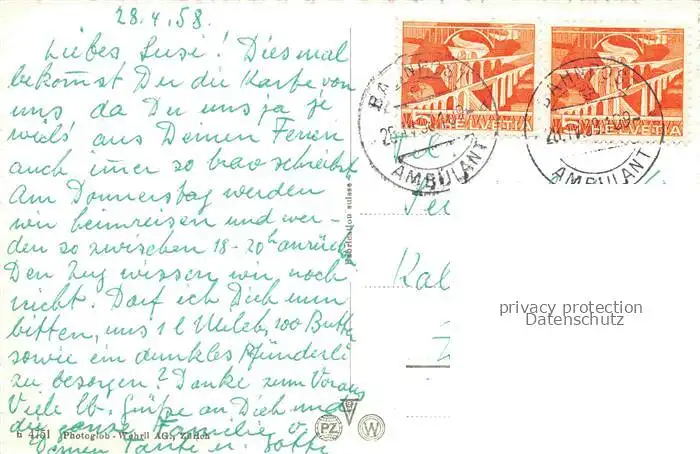 28.4.58.
Liebes Susi! Diesmal
bekommst Du die Karte von
uns da Du uns ja je
weils aus Deinen Ferien
auch immer so brav schreibst
Am Donnerstag werden
wir heimreisen und wer-
den so zwischen 18-20h zurück
Den Zug wissen wir noch
nicht. Darf ich Dich nun
bitten, uns 1 l Milch, 100 Butter
sowie ein dunkles Pfünderli
zu besorgen? Danke zum Voraus
Viele lb. Grüsse an Dich und
die ganze Familie v.
Deinen Tante u. Götti
6 4751 Photoglob-Wehrli AG., Zürich
Fabrication suisse
PZ
W
HELVETIA
HELVETIA
BAHNPOST
AMBULANT
BAHNPOST
AMBULANT
Kal
privacy protection
Datenschutz